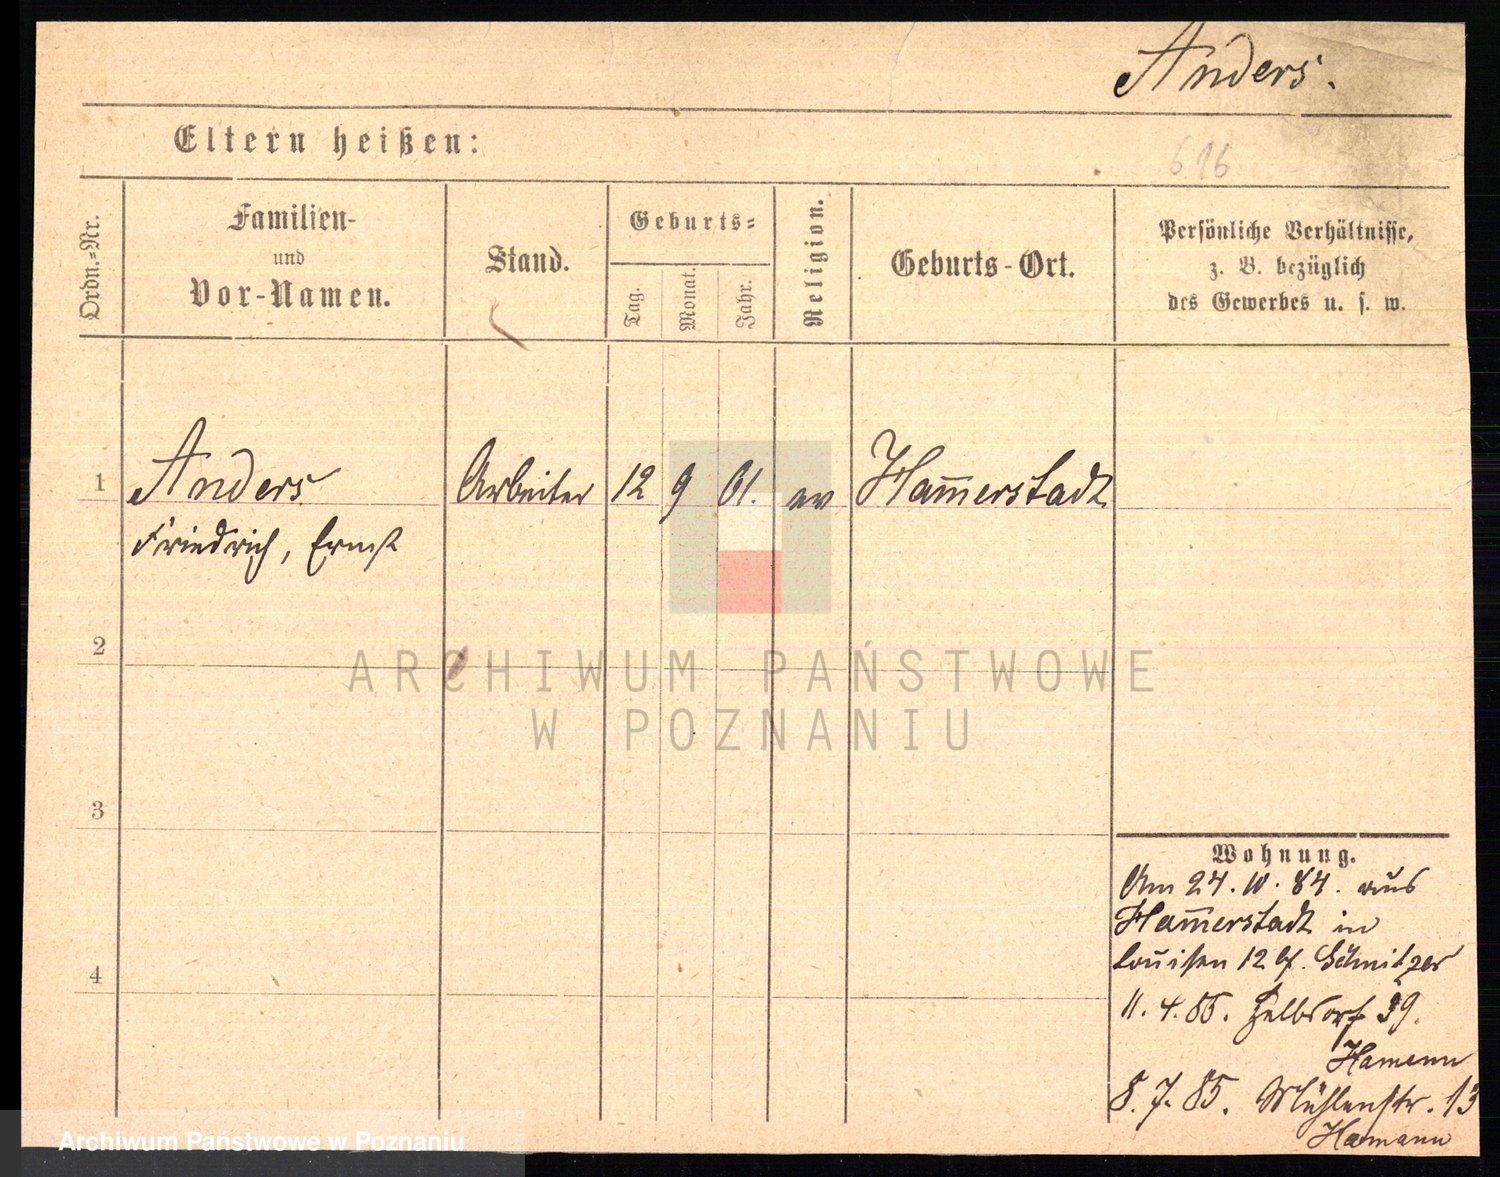 Anders.
Eltern heißen:
616
Ordn.=Nr.
Familien-
und
Vor-Namen.
Stand.
Geburts=
Tag.
Monat.
Jahr.
Religion.
Geburts-Ort.
Persönliche Verhältnisse,
z. B. bezüglich
des Gewerbes u. s. w.
1 Anders Arbeiter 12 9 61. ev Ham̅erstadt
Friedrich, Ernst
2
ARCHIWUM PAŃSTWOWE
W POZNANIU
3
Wohnung.
Am 24. 10. 84. aus
Ham̅erstadt in
Louisen 12 Schnitzer
4
11. 4. 85. 39.
Hamann
8. 7. 85. Mühlenstr. 13
Hamann
Archiwum Państwowe w Poznaniu